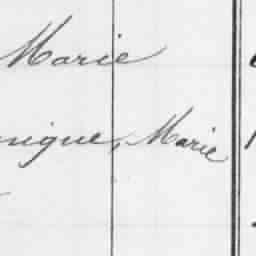 Marie
nique, Marie